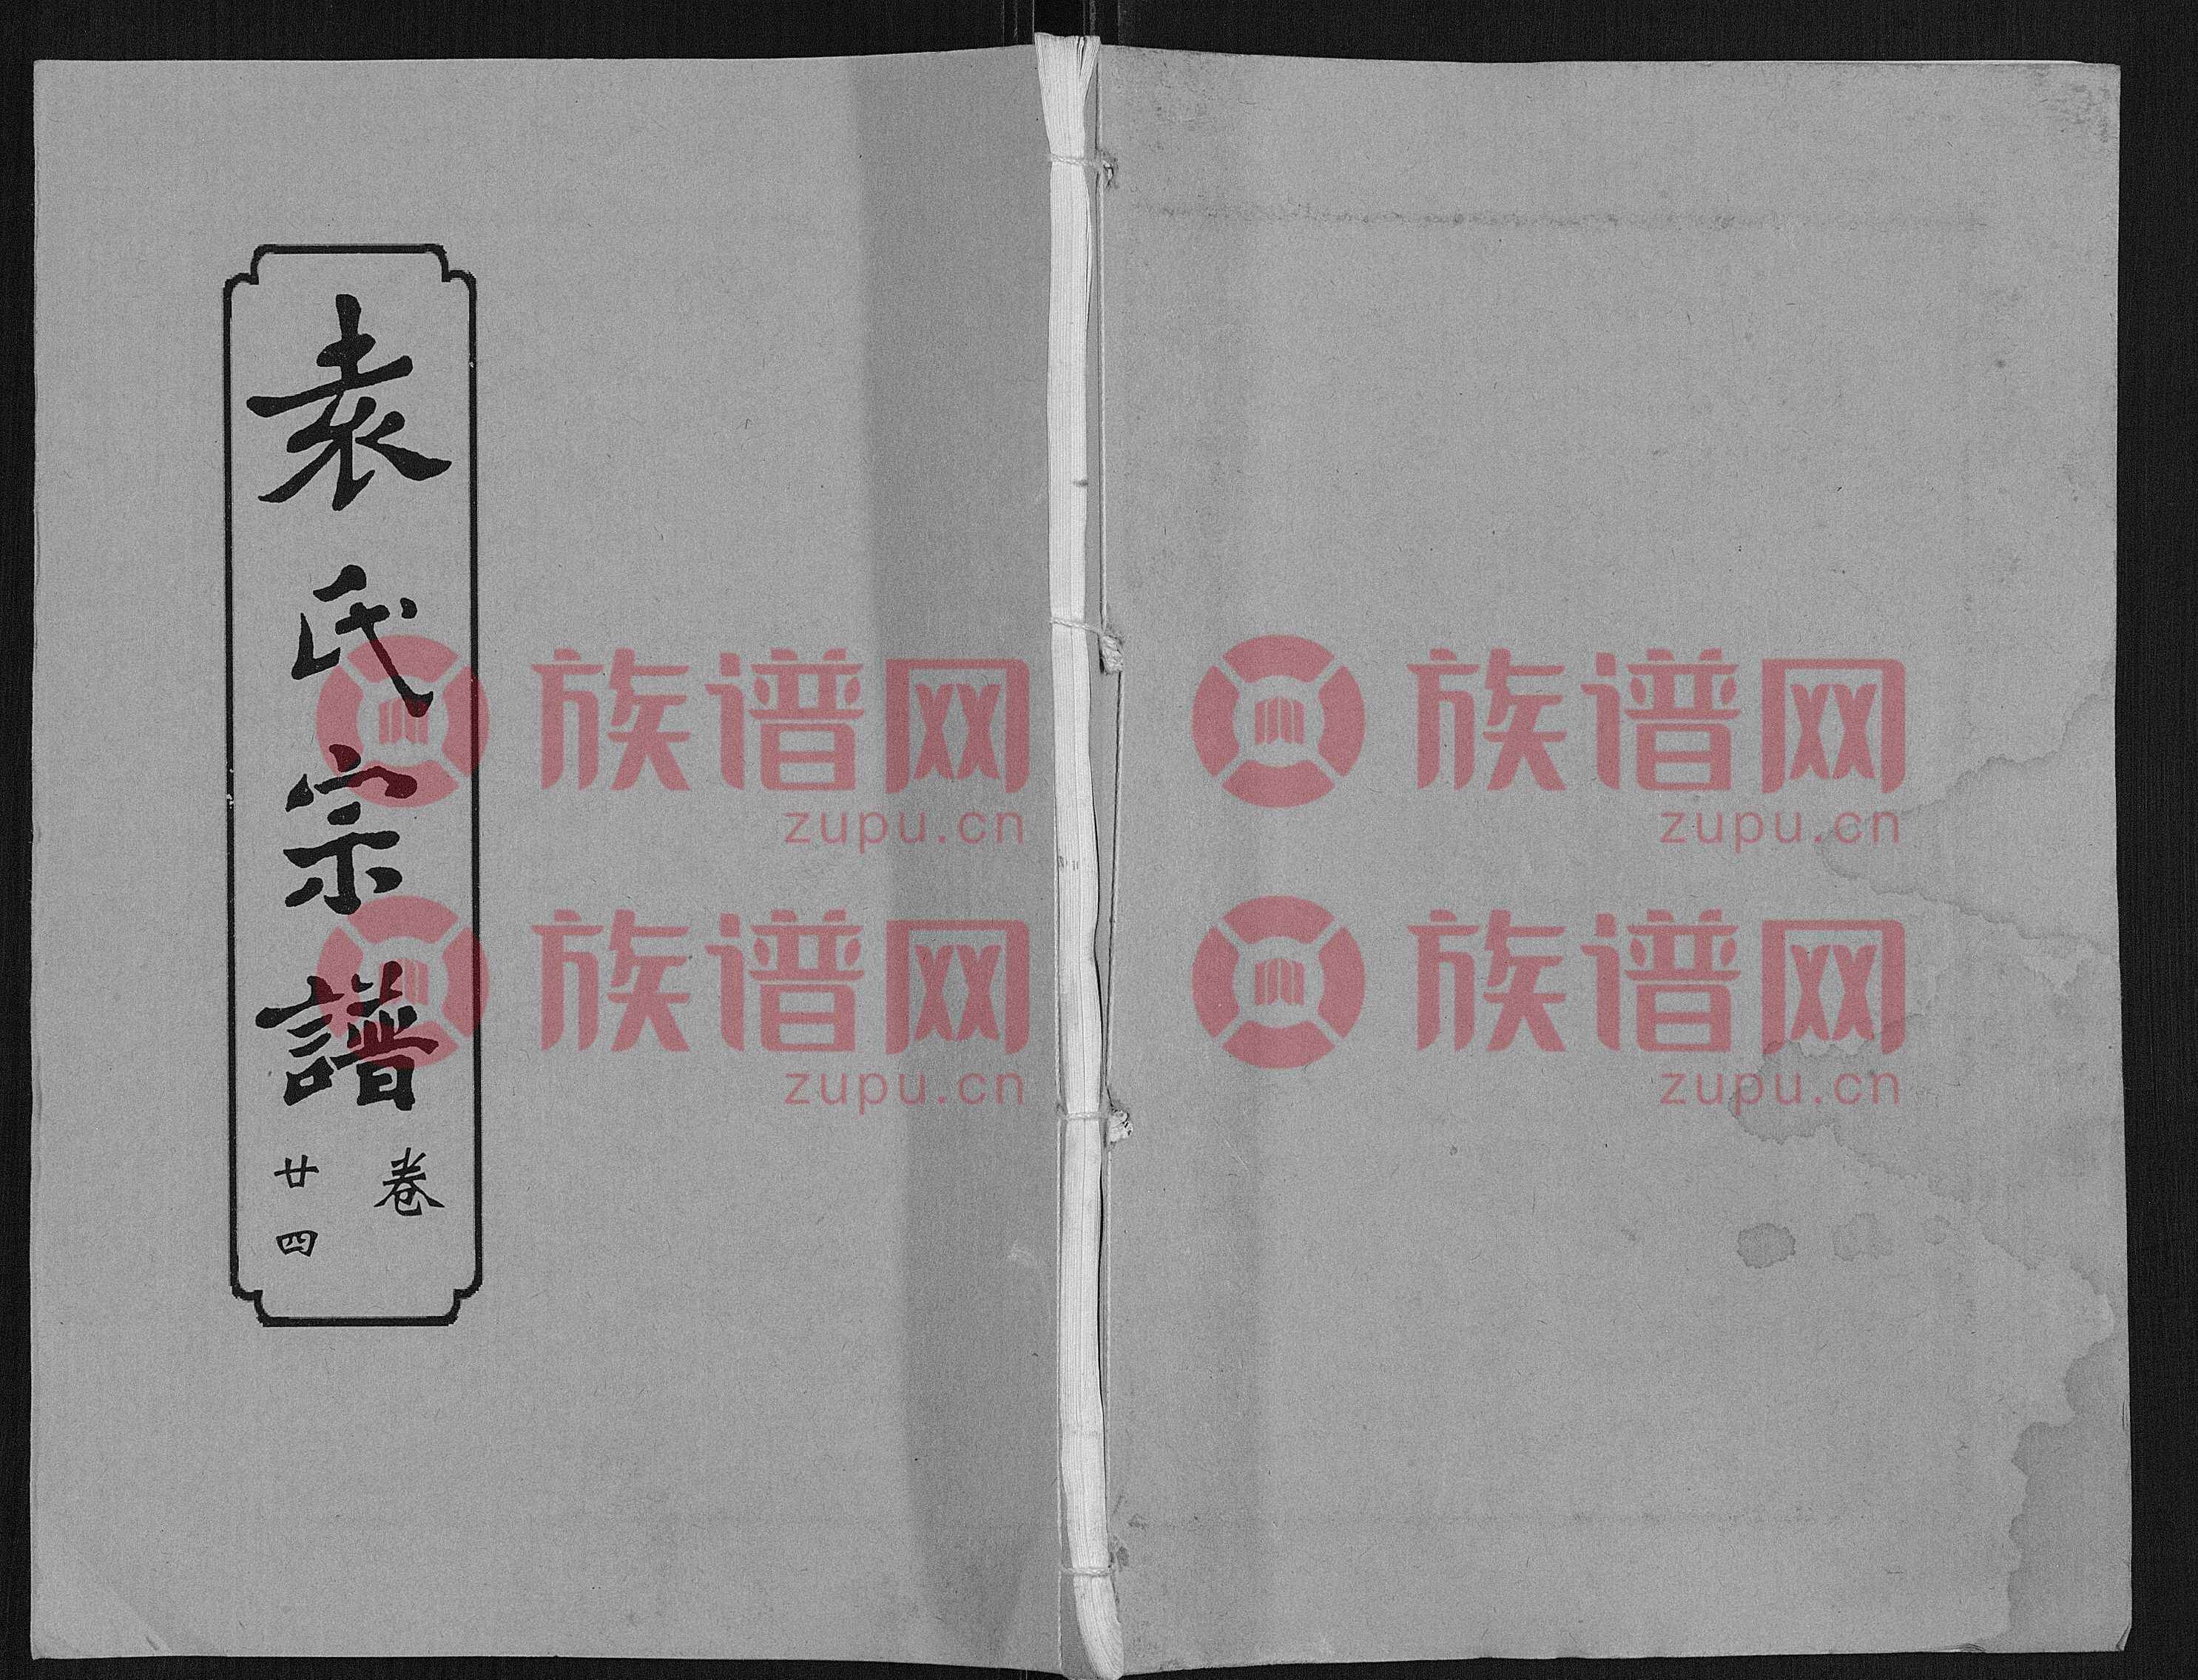 袁氏宗譜
卷
廿四
族谱网
zupu.cn
族谱网
zupu.cn
族谱网
zupu.cn
族谱网
zupu.cn